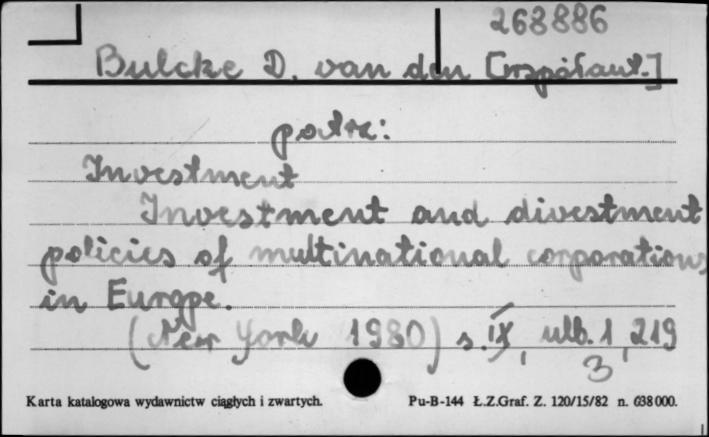 268886
Bulcke D. van den [współaut.]
patrz:
Investment
Investment and divestment
policies of multinational corporations
in Europe.
(New York 1980) s. IX, ulb. 1, 219
3
Karta katalogowa wydawnictw ciągłych i zwartych.
Pu-B-144 Ł.Z.Graf. Z. 120/15/82 n. 638000.